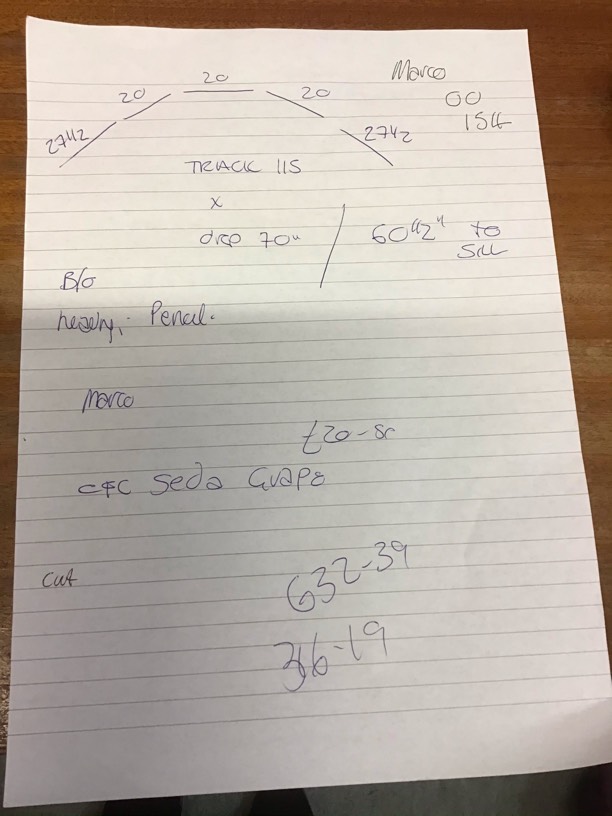 20
20
20
Marco
27½
27½
00
154
TRACK 115
x
drop 70"
60½" to
Sill
B/O
heading: Pencil.
Marco
£20-80
CFC Seda Grape
cut
632-39
316-19